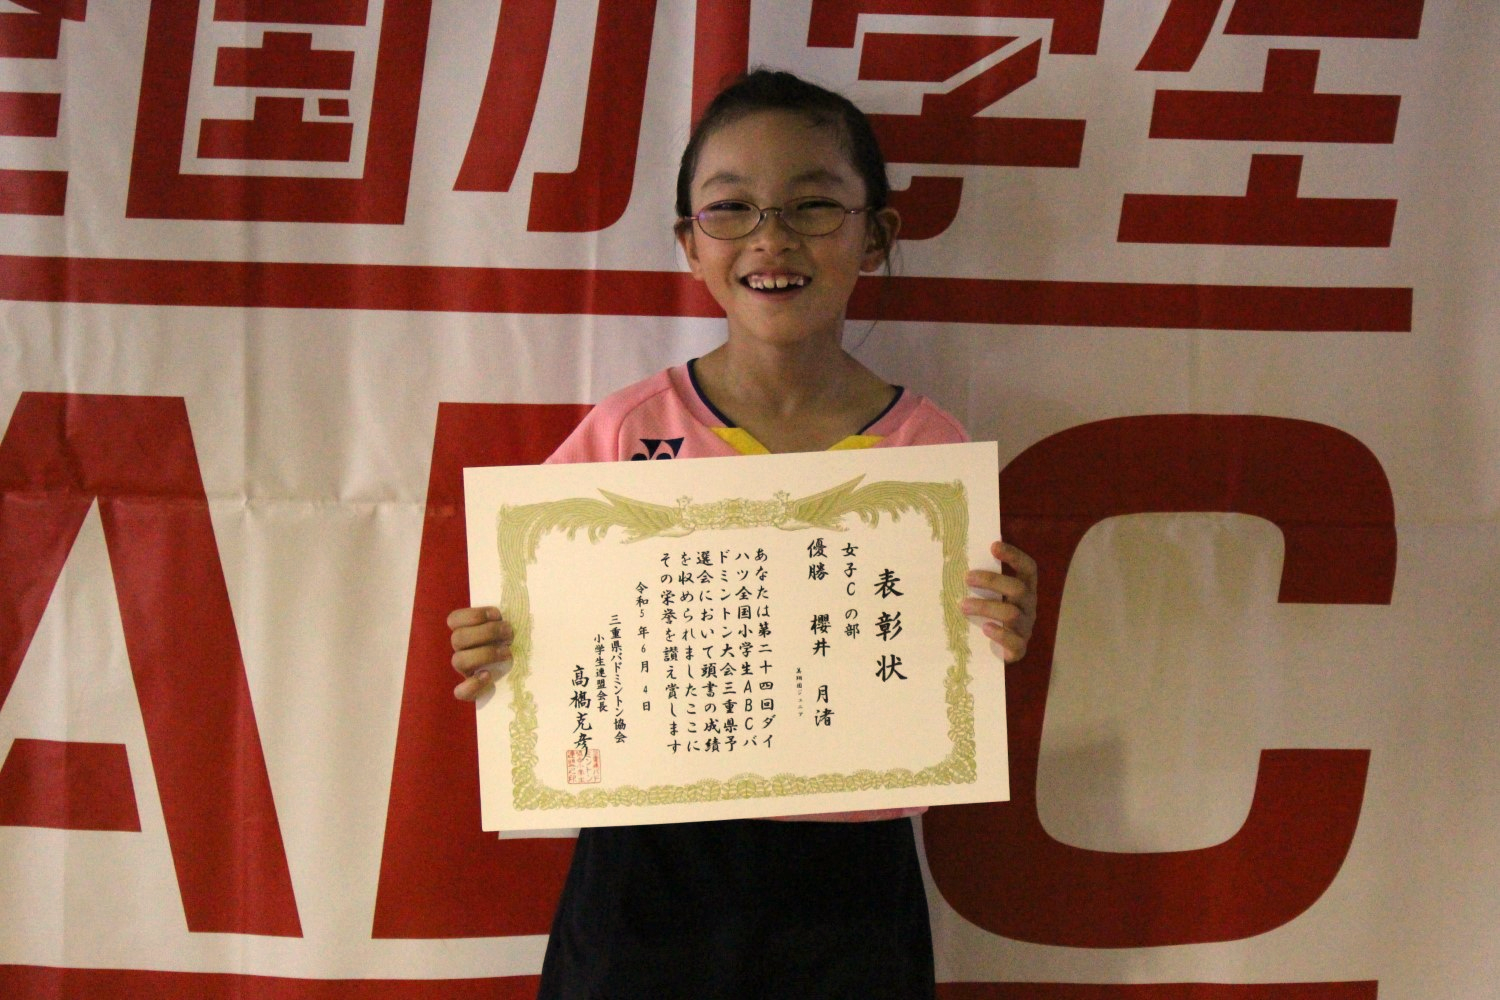 全国小学生
ABC
表彰状
女子Cの部
優勝 櫻井 月渚
美樹園ジュニア
あなたは第二十四回ダイ
ハツ全国小学生ABCバ
ドミントン大会三重県予
選会において頭書の成績
を収められましたここに
その栄誉を讃え賞します
令和5年6月4日
三重県バドミントン協会
小学生連盟会長
高橋克彦